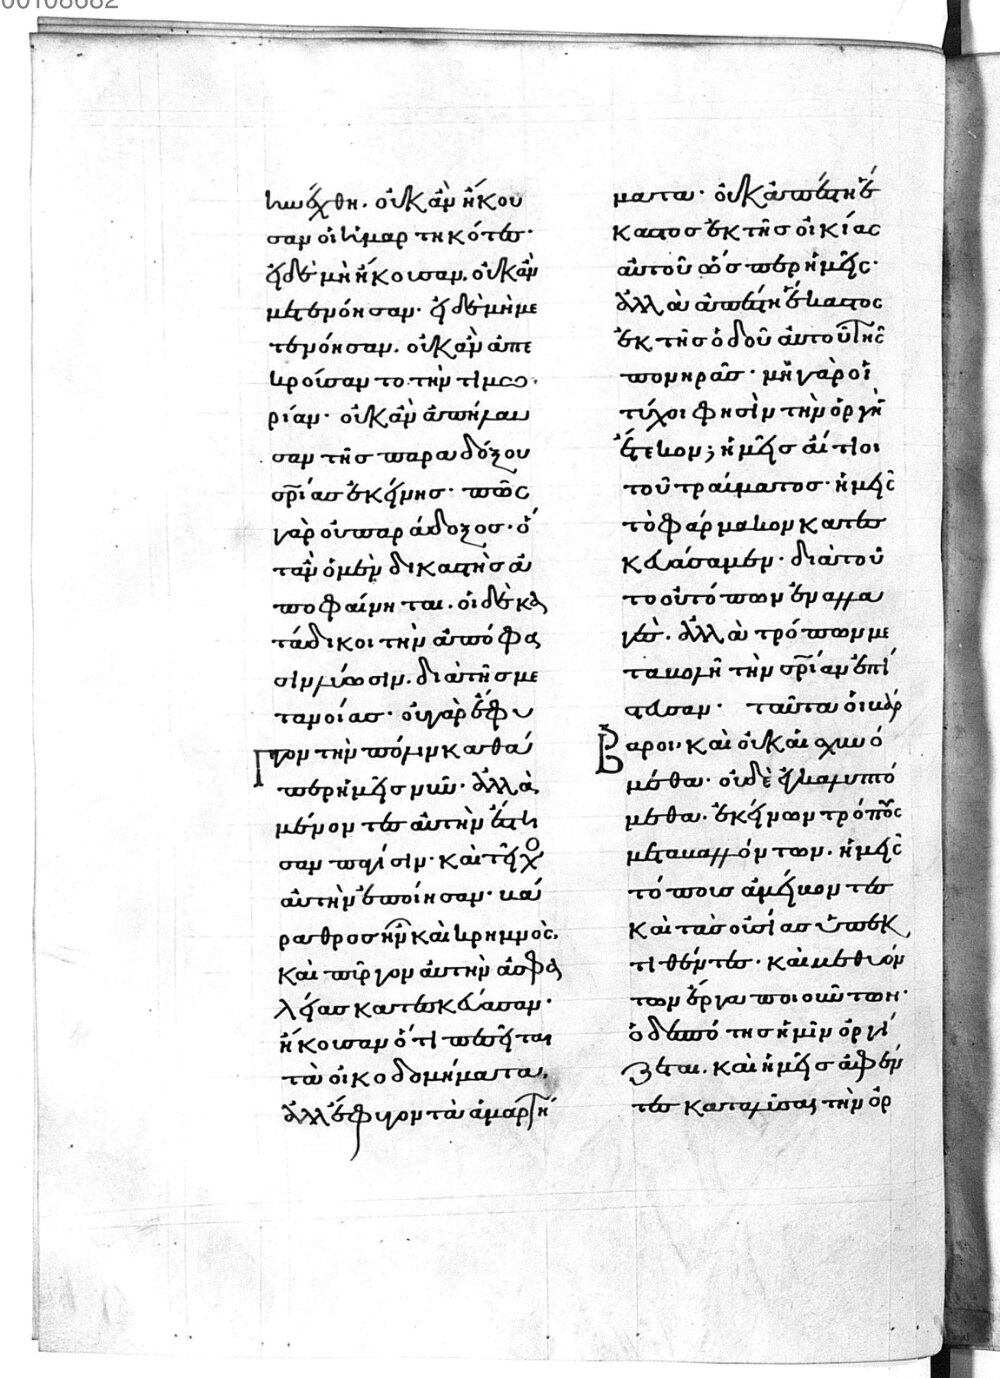 00108682
ἰνέχθη. οὐκ ἂν ἤκου
σαν οἱ ἡμαρτηκότες·
εἰ δὲ μὴ ἤκουσαν, οὐκ ἂν
μετενόησαν· εἰ δὲ μὴ με
τενόησαν. οὐκ ἂν ἀπε
κρούσαντο τὴν τιμω
ρίαν· οὐκ ἂν ἀπήλαυ
σαν τῆς παραδόξου
σρίας ἐκείνης· πῶς
γὰρ οὐ παράδοξος· ὅ
ταν ὁ μὲν δικαστὴς ἀ
ποφαίνηται. οἱ δὲ κα
τάδικοι τὴν ἀπόφα
σιν λύωσιν. διὰ τῆς με
τανοίας· οὐ γὰρ ἔφυ
γον τὴν πόλιν καθά
περ ἡμεῖς νῦν· ἀλλὰ
μένοντες αὐτὴν ἔστη
σαν πάλιν· καὶ τεῖχος
αὐτὴν ἐποίησαν· καὶ
βάραθρος ἦν καὶ κρημνὸς,
καὶ πύργον αὐτὴν ἀσφα
λείας κατεσκεύασαν·
ἤκουσαν ὅτι πεσεῖται
τὰ οἰκοδομήματα,
ἀλλ ἔφυγον τὰ ἁμαρτή
ματα· οὐκ ἀπέστη ἕ
καστος ἐκ τῆς οἰκίας
αὐτοῦ ὥσπερ ἡμεῖς·
ἀλλ ἀπέστη ἕκαστος
ἐκ τῆς ὁδοῦ αὐτοῦ τῆς
πονηρᾶς· μὴ γὰρ οἱ
τύχοι φησὶν τὴν ὀργὴν
ἔτεκον; ἡμεῖς αἴτιοι
τοῦ τραύματος· ἡμεῖς
τὸ φάρμακον κατεσ
κευάσαμεν· διὰ τοῦ
το οὐ τόπων ἐναλλα
γὰς. ἀλλὰ τρόπων με
ταβολῇ τὴν σρίαν ἐπί
στευσαν· ταῦτα οἱ βάρ
βαροι· καὶ οὐκ αἰσχυνό
μεθα· οὐδὲ ἐγκαλυπτό
μεθα. ἐκείνων τρόπους
μεταβαλλόντων. ἡμεῖς
τόπους ἀμείβοντες
καὶ τὰς οὐσίας ὑπεκ
τιθέντες· καὶ μεθυόν
των ἔργα ποιούντων·
ὁ δεσπότης ἡμῖν ὀργί
ζεται. καὶ ἡμεῖς ἀφέν
τες καταλῦσαι τὴν ὀρ